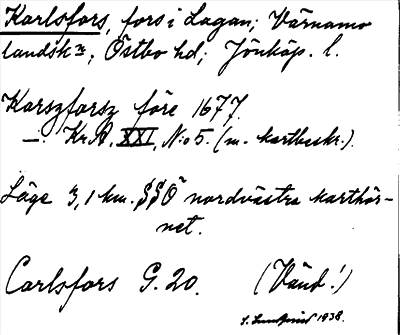 Karlsfors, fors i Lagan; Värnamo
landsk:n; Östbo hd; Jönköp. l.
Karszforsz före 1677.
—: Kr.A. XXI, N:o 5. (m. kartbeskr.).
Läge 3,1 km. SSÖ nordvästra karthör-
net.
Carlsfors G. 20. (Vänd!)
1938.